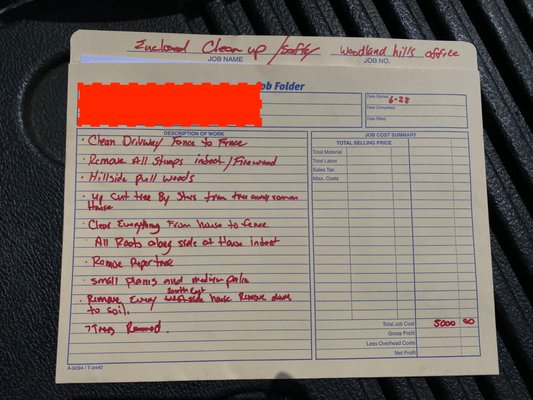 Enclosed Clean up / Safty Woodland hills office
JOB NAME
JOB NO.
Job Folder
Date Started 6-28
Date Completed
Date Billed
DESCRIPTION OF WORK
• Clean Driveway Fence to Fence
• Remove All Stumps indeet / Firewood
• Hillside pull weeds
• up Cut tree By Stirs trim tree away
House
• Clear Everything From house to fence
All Roots along side of House indeet
• Remove Peper tree
• small plams and medium palm
South East
• Remove Every west side house Remove down
to soil.
7 Trees Removed.
JOB COST SUMMARY
TOTAL SELLING PRICE
Total Material
Total Labor
Sales Tax
Misc. Costs
Total Job Cost 5000 00
Gross Profit
Less Overhead Costs
Net Profit
A-9294 / T-3440